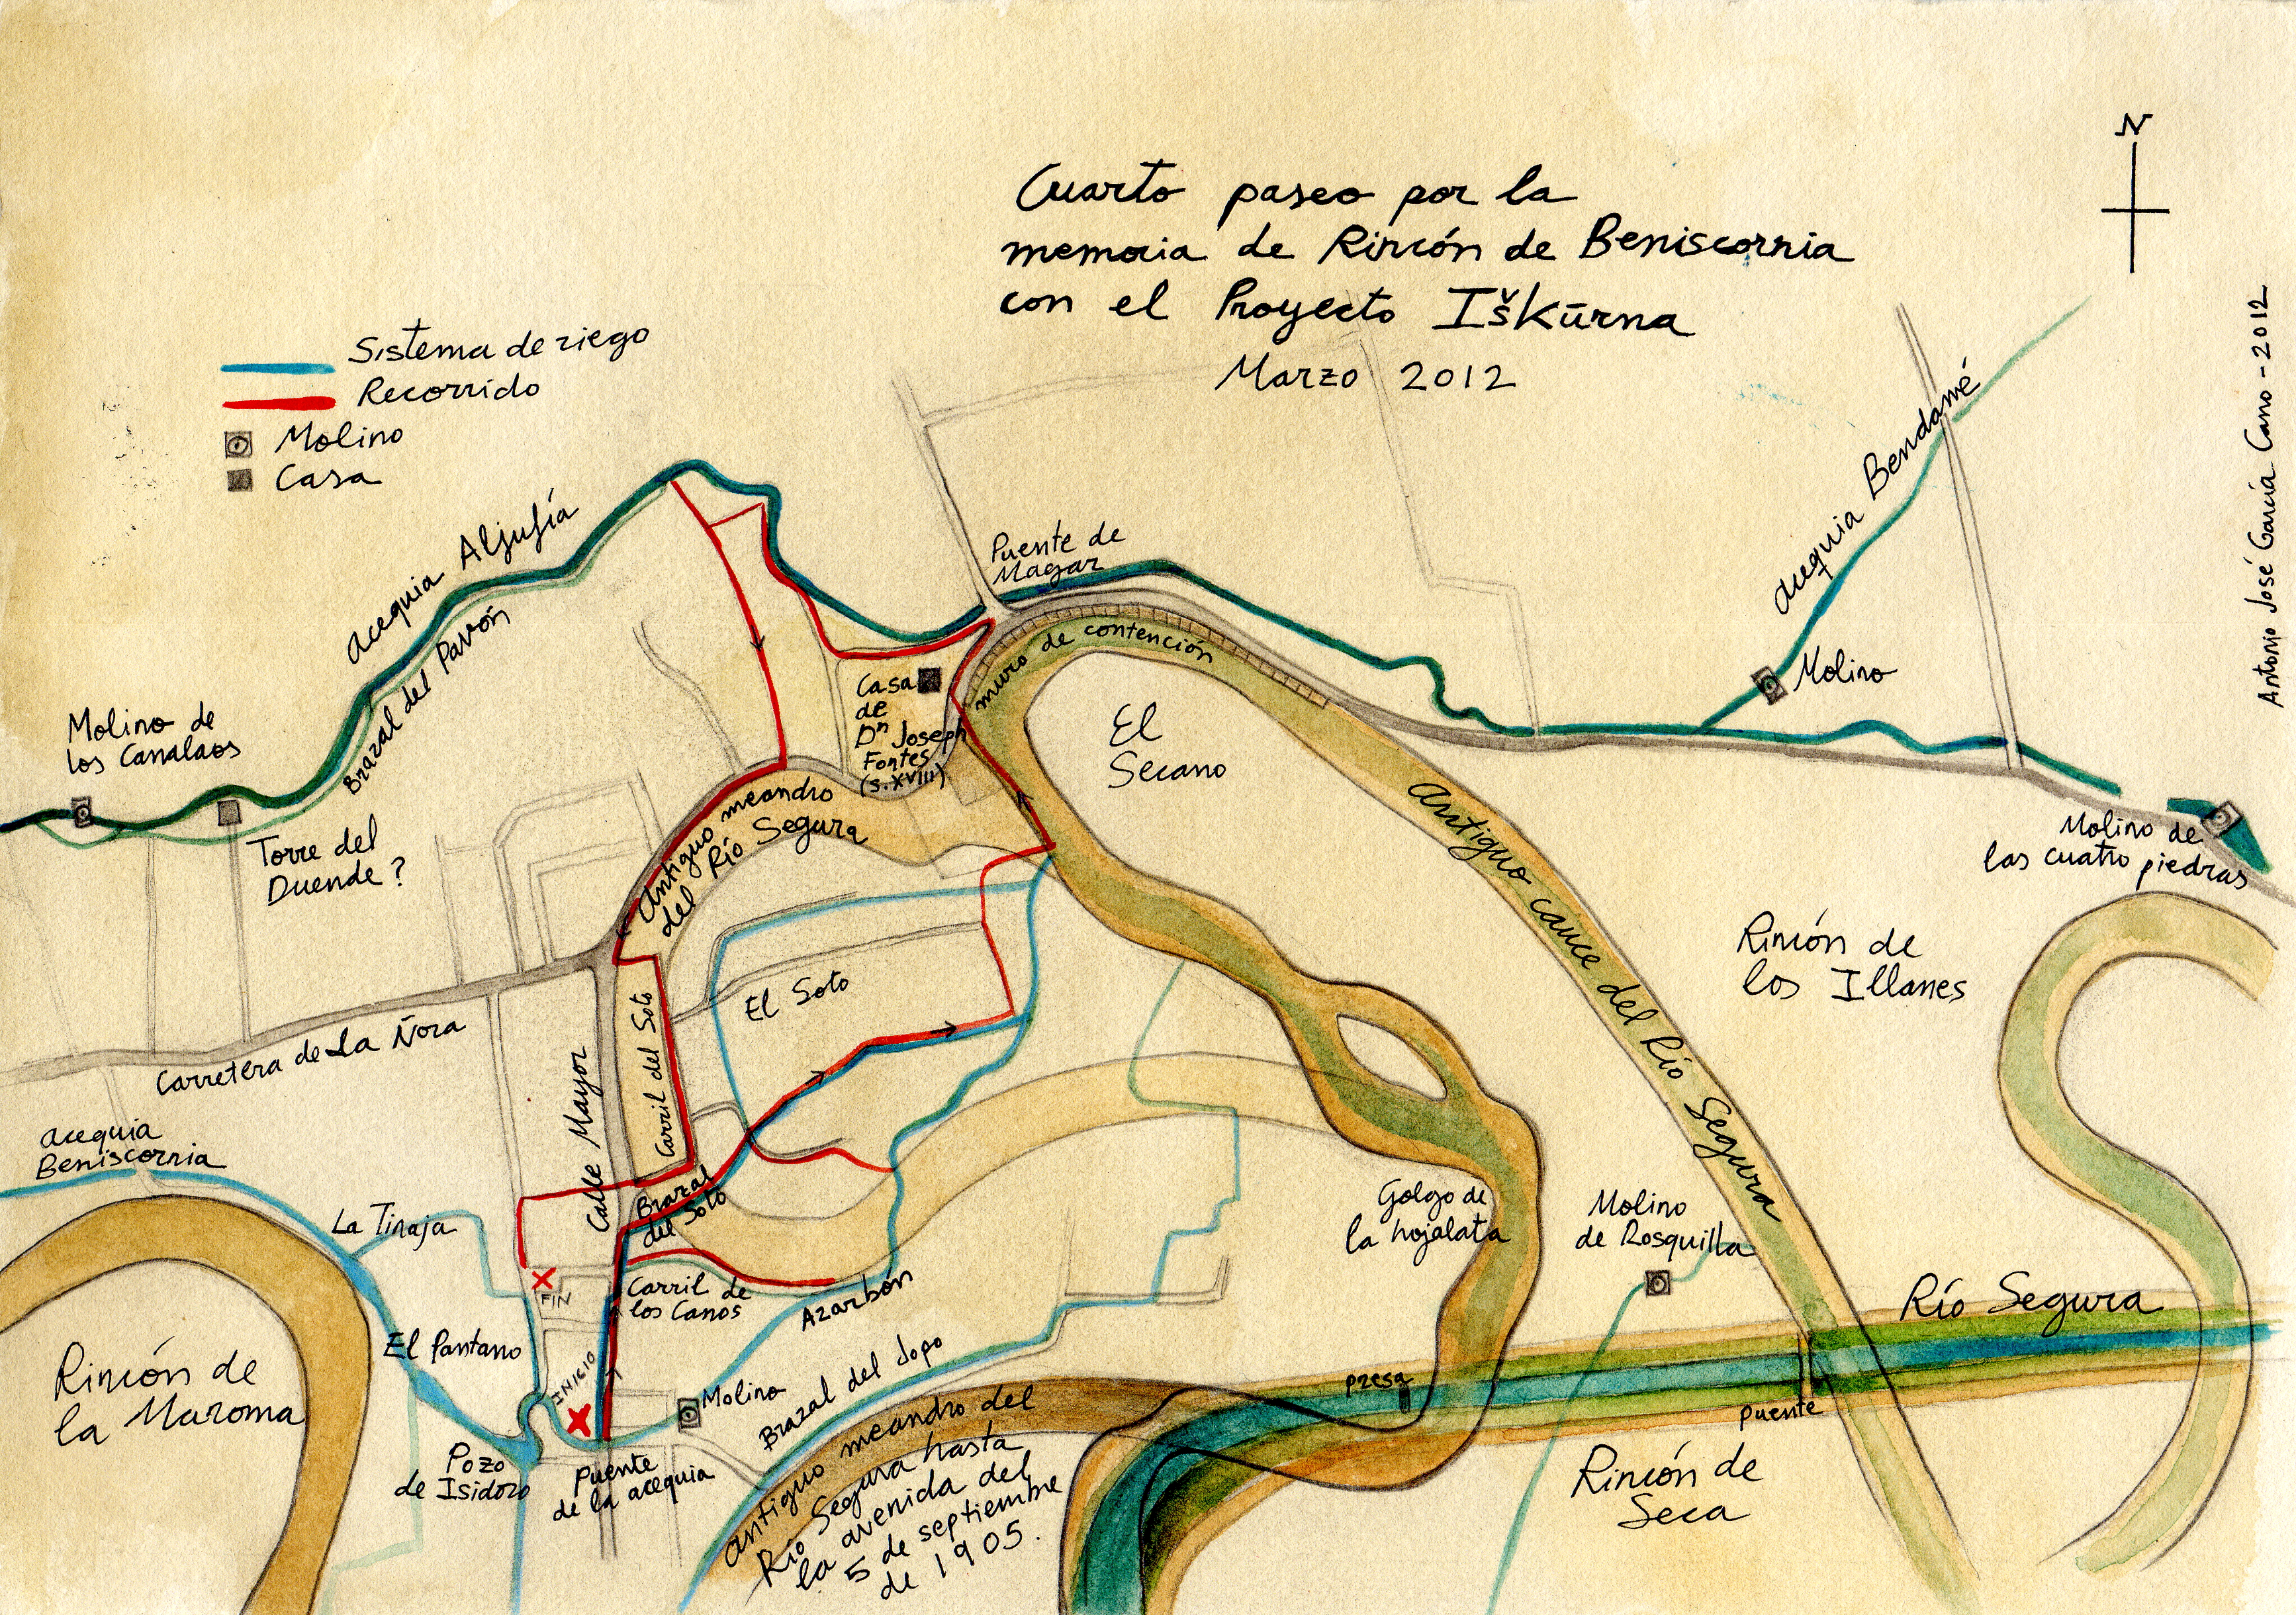 Cuarto paseo por la
memoria de Rincón de Beniscornia
con el Proyecto Iškūrna
Marzo 2012
N
Antonio José García Cano - 2012
Sistema de riego
Recorrido
Molino
Casa
acequia Aljufía
Brazal del Pavón
Molino de
los Canalaos
Torre del
Duende?
Puente de
Magar
muro de contención
Casa
de
Dⁿ Joseph
Fontes
(s.XVIII)
El
Secano
acequia Bendamé
Molino
Molino de
las cuatro piedras
Antiguo meandro
del Río Segura
Antiguo cauce del Río Segura
Rincón de
los Illanes
El Soto
Carretera de La Ñora
Calle Mayor
Carril del Soto
acequia
Beniscornia
La Tinaja
Brazal
del Soto
Golgo de
la hojalata
Molino
de Rosquilla
Río Segura
FIN
Carril de
los Canos
Azarbón
El Pantano
INICIO
Rincón de
la Maroma
Molino
Brazal del Jopo
presa
puente
Pozo
de Isidoro
Puente
de la acequia
antiguo meandro del
Río Segura hasta
la avenida del
5 de septiembre
de 1905.
Rincón de
Seca